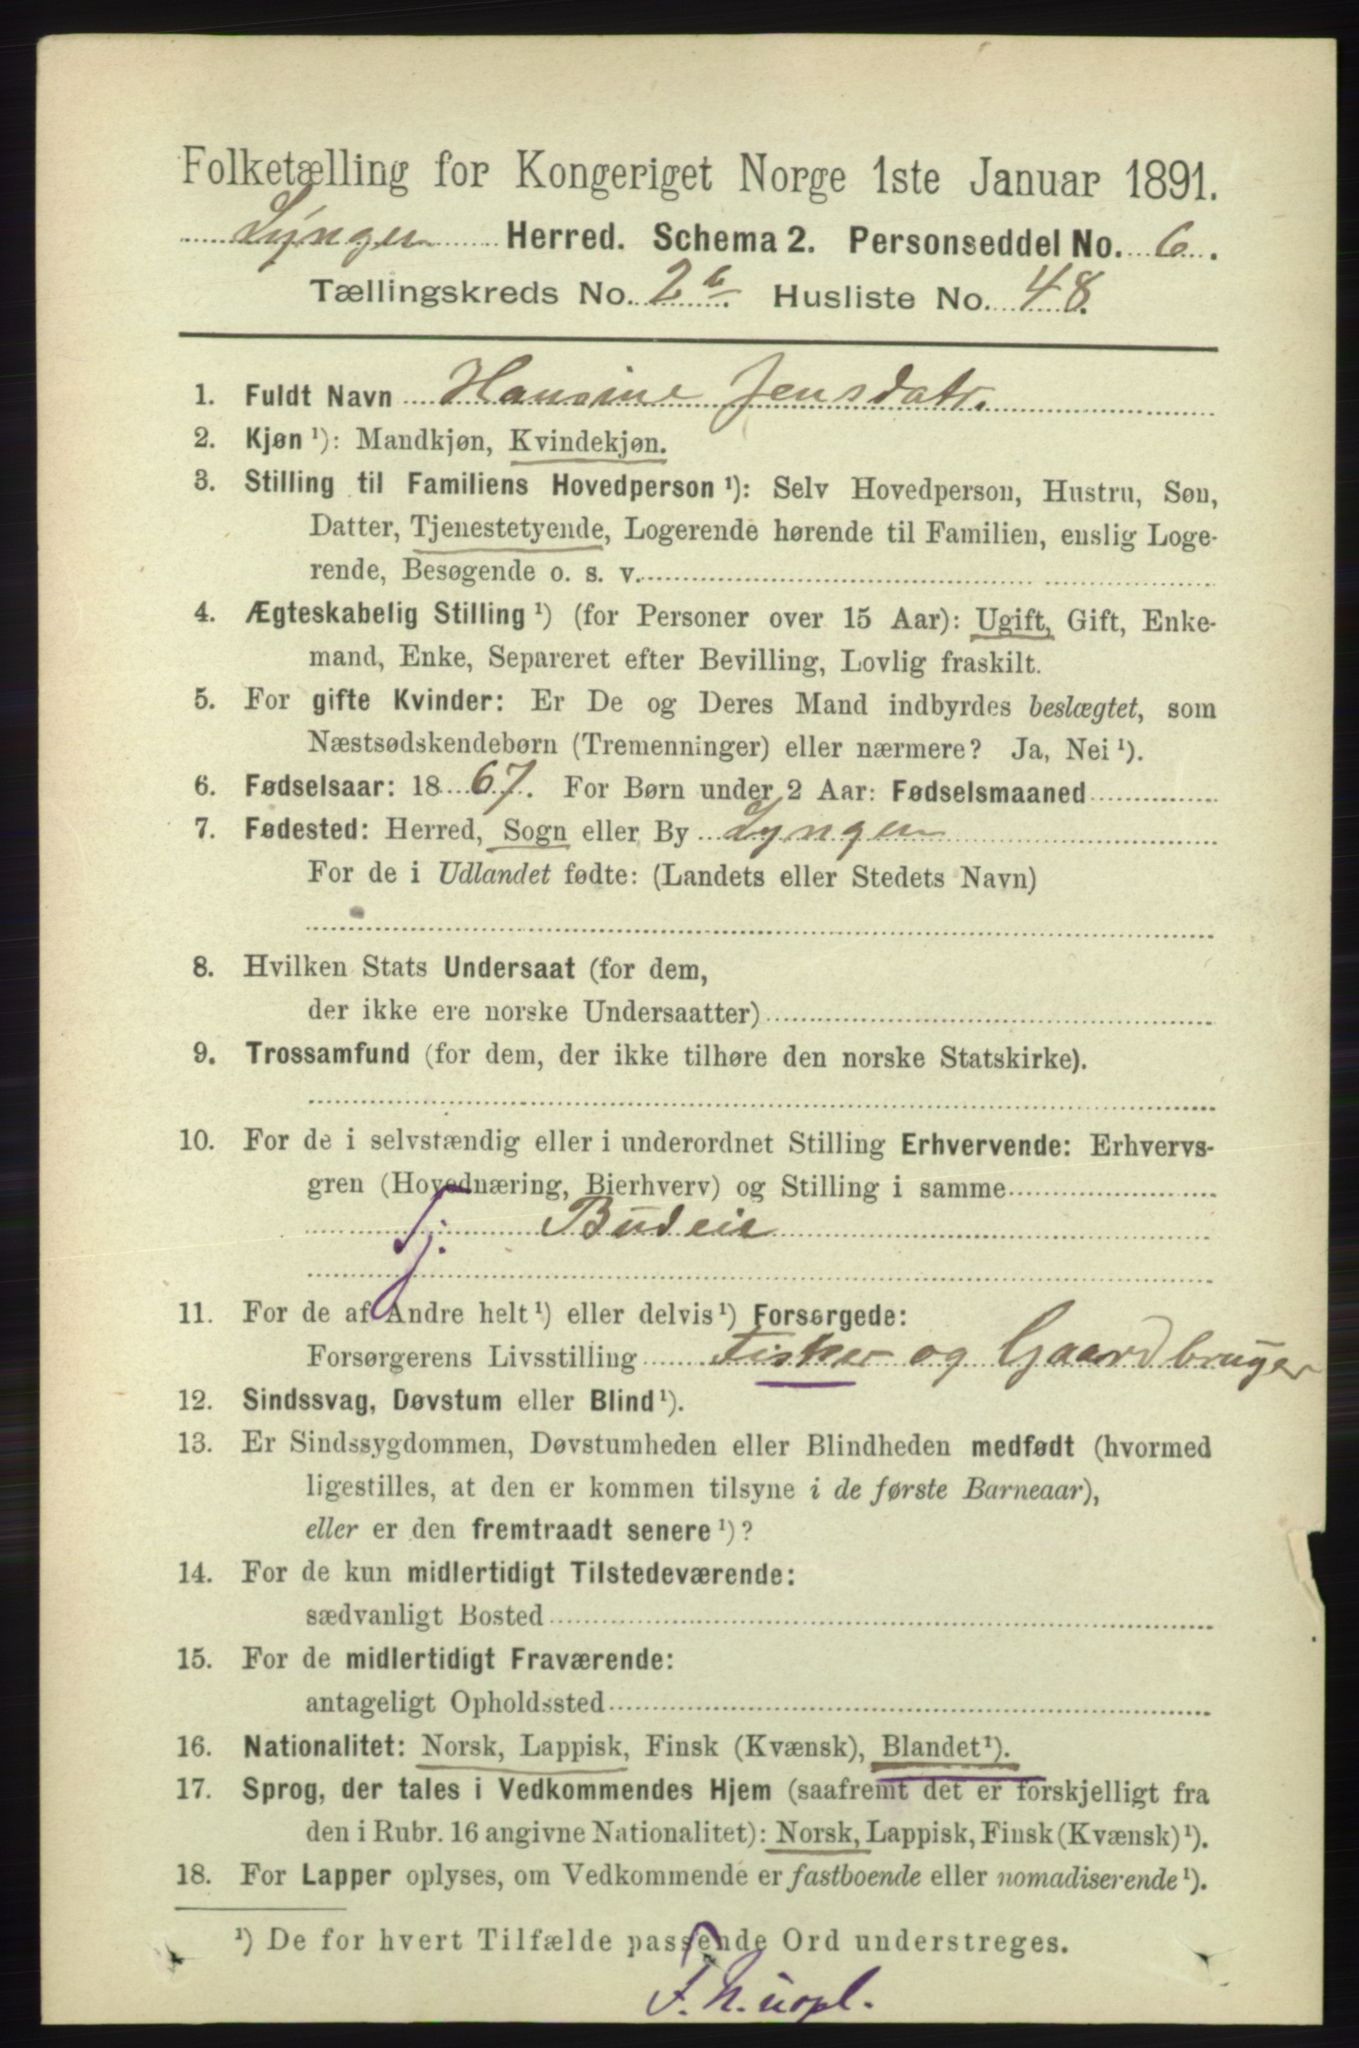 Folketælling for Kongeriget Norge 1ste Januar 1891.
Lyngen Herred. Schema 2. Personseddel No. 6.
Tællingskreds No. 2b. Husliste No. 48.
1. Fuldt Navn Hansine Jensdatr.
2. Kjøn ¹): Mandkjøn, Kvindekjøn.
3. Stilling til Familiens Hovedperson ¹): Selv Hovedperson, Hustru, Søn,
Datter, Tjenestetyende, Logerende hørende til Familien, enslig Loge-
rende, Besøgende o. s. v.
4. Ægteskabelig Stilling ¹) (for Personer over 15 Aar): Ugift, Gift, Enke-
mand, Enke, Separeret efter Bevilling, Lovlig fraskilt.
5. For gifte Kvinder: Er De og Deres Mand indbyrdes beslægtet, som
Næstsødskendebørn (Tremenninger) eller nærmere? Ja, Nei ¹).
6. Fødselsaar: 1867. For Børn under 2 Aar: Fødselsmaaned
7. Fødested: Herred, Sogn eller By Lyngen
For de i Udlandet fødte: (Landets eller Stedets Navn)
8. Hvilken Stats Undersaat (for dem,
der ikke ere norske Undersaatter)
9. Trossamfund (for dem, der ikke tilhøre den norske Statskirke).
10. For de i selvstændig eller i underordnet Stilling Erhvervende: Erhvervs-
gren (Hovednæring, Bierhverv) og Stilling i samme
Tj. Budeie
11. For de af Andre helt ¹) eller delvis ¹) Forsørgede:
Forsørgerens Livsstilling Fisker og Gaardbruger
12. Sindssvag, Døvstum eller Blind ¹).
13. Er Sindssygdommen, Døvstumheden eller Blindheden medfødt (hvormed
ligestilles, at den er kommen tilsyne i de første Barneaar),
eller er den fremtraadt senere ¹)?
14. For de kun midlertidigt Tilstedeværende:
sædvanligt Bosted
15. For de midlertidigt Fraværende:
antageligt Opholdssted
16. Nationalitet: Norsk, Lappisk, Finsk (Kvænsk), Blandet ¹).
17. Sprog, der tales i Vedkommendes Hjem (saafremt det er forskjelligt fra
den i Rubr. 16 angivne Nationalitet): Norsk, Lappisk, Finsk (Kvænsk) ¹).
18. For Lapper oplyses, om Vedkommende er fastboende eller nomadiserende ¹).
¹) De for hvert Tilfælde passende Ord understreges.